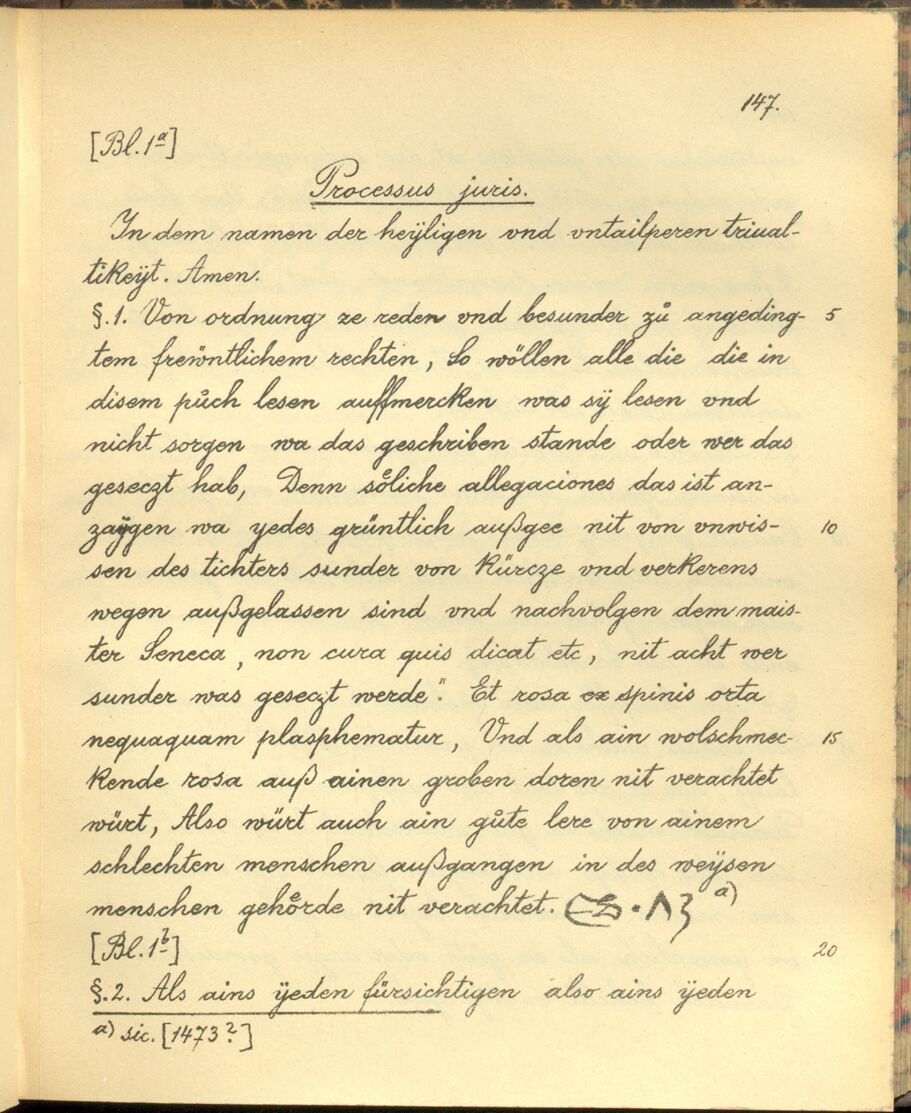 147.
[Bl. 1ª]
Processus juris.
In dem namen der heÿligen vnd vntailperen triual-
tikeÿt. Amen.
§. 1. Von ordnung ze reden vnd besunder zů angeding- 5
tem freẅntlichem rechten, So wöllen alle die die in
disem půch lesen auffmercken was sÿ lesen vnd
nicht sorgen wa das geschriben stande oder wer das
geseczt hab, Denn soͤliche allegaciones das ist an-
zaÿgen wa yedes grüntlich außgee nit von vnwis- 10
sen des tichters sunder von kürcze vnd verkerens
wegen außgelassen sind vnd nachvolgen dem mais-
ter Seneca, non cura quis dicat etc, nit acht wer
sunder was geseczt werde". Et rosa ex spinis orta
nequaquam plasphematur, Vnd als ain wolschmec- 15
kende rosa auß ainen groben doren nit verachtet
würt, Also würt auch ain gůte lere von ainem
schlechten menschen außgangen in des weÿsen
menschen gehoͤrde nit verachtet. a)
[Bl. 1ᵇ] 20
§. 2. Als ains ÿeden fürsichtigen also ains ÿeden
a) sic. [1473?]